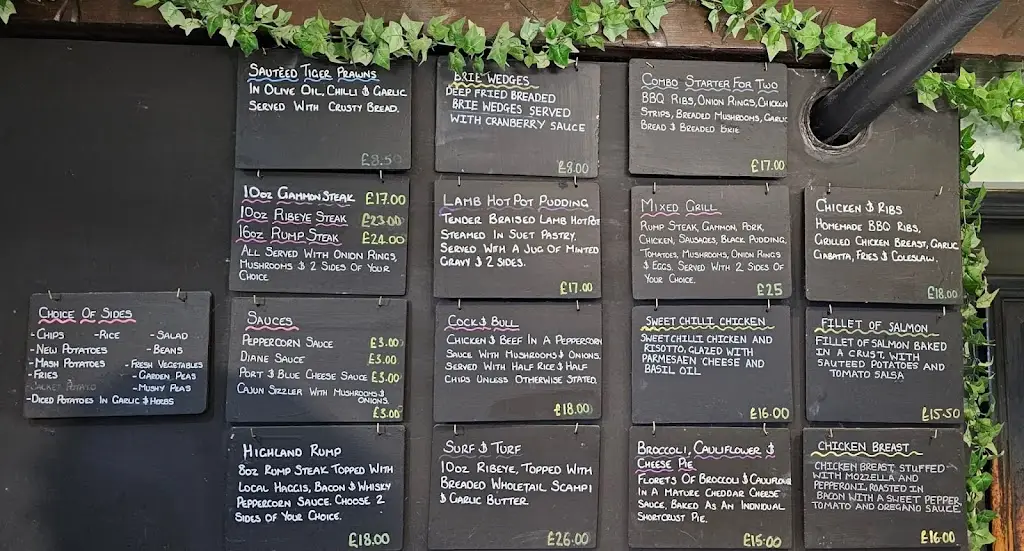 SAUTÉED TIGER PRAWNS
IN OLIVE OIL, CHILLI & GARLIC
SERVED WITH CRUSTY BREAD.
£8.50
BRIE WEDGES
DEEP FRIED BREADED
BRIE WEDGES SERVED
WITH CRANBERRY SAUCE
£8.00
COMBO STARTER FOR TWO
BBQ RIBS, ONION RINGS, CHICKEN
STRIPS, BREADED MUSHROOMS, GARLIC
BREAD & BREADED BRIE
£17.00
10OZ GAMMON STEAK £17.00
10OZ RIBEYE STEAK £23.00
16OZ RUMP STEAK £24.00
ALL SERVED WITH ONION RINGS,
MUSHROOMS & 2 SIDES OF YOUR
CHOICE
LAMB HOT POT PUDDING
TENDER BRAISED LAMB HOTPOT
STEAMED IN SUET PASTRY.
SERVED WITH A JUG OF MINTED
GRAVY & 2 SIDES.
£17.00
MIXED GRILL
RUMP STEAK, GAMMON, PORK,
CHICKEN, SAUSAGES, BLACK PUDDING,
TOMATOES, MUSHROOMS, ONION RINGS
& EGGS. SERVED WITH 2 SIDES OF
YOUR CHOICE.
£25
CHICKEN & RIBS
HOMEMADE BBQ RIBS,
GRILLED CHICKEN BREAST, GARLIC
CIABATTA, FRIES & COLESLAW.
£18.00
CHOICE OF SIDES
- CHIPS - RICE - SALAD
- NEW POTATOES - BEANS
- MASH POTATOES - FRESH VEGETABLES
- FRIES - GARDEN PEAS
- JACKET POTATO - MUSHY PEAS
- DICED POTATOES IN GARLIC & HERBS
SAUCES
PEPPERCORN SAUCE £3.00
DIANE SAUCE £3.00
PORT & BLUE CHEESE SAUCE £3.00
CAJUN SIZZLER WITH MUSHROOMS &
ONIONS.
£3.00
COCK & BULL
CHICKEN & BEEF IN A PEPPERCORN
SAUCE WITH MUSHROOMS & ONIONS.
SERVED WITH HALF RICE & HALF
CHIPS UNLESS OTHERWISE STATED.
£18.00
SWEET CHILLI CHICKEN
SWEET CHILLI CHICKEN AND
RISOTTO, GLAZED WITH
PARMESAEN CHEESE AND
BASIL OIL
£16.00
FILLET OF SALMON
FILLET OF SALMON BAKED
IN A CRUST, WITH
SAUTEED POTATOES AND
TOMATO SALSA
£15.50
HIGHLAND RUMP
8OZ RUMP STEAK TOPPED WITH
LOCAL HAGGIS, BACON & WHISKY
PEPPERCORN SAUCE. CHOOSE 2
SIDES OF YOUR CHOICE.
£18.00
SURF & TURF
10OZ RIBEYE, TOPPED WITH
BREADED WHOLETAIL SCAMPI
& GARLIC BUTTER.
£26.00
BROCCOLI, CAULIFLOWER &
CHEESE PIE
FLORETS OF BROCCOLI & CAULIFLOWER
IN A MATURE CHEDDAR CHEESE
SAUCE, BAKED AS AN INDIVIDUAL
SHORTCRUST PIE.
£15.00
CHICKEN BREAST
CHICKEN BREAST STUFFED
WITH MOZZELLA AND
PEPPERONI, ROASTED IN
BACON WITH A SWEET PEPPER,
TOMATO AND OREGANO SAUCE
£16.00